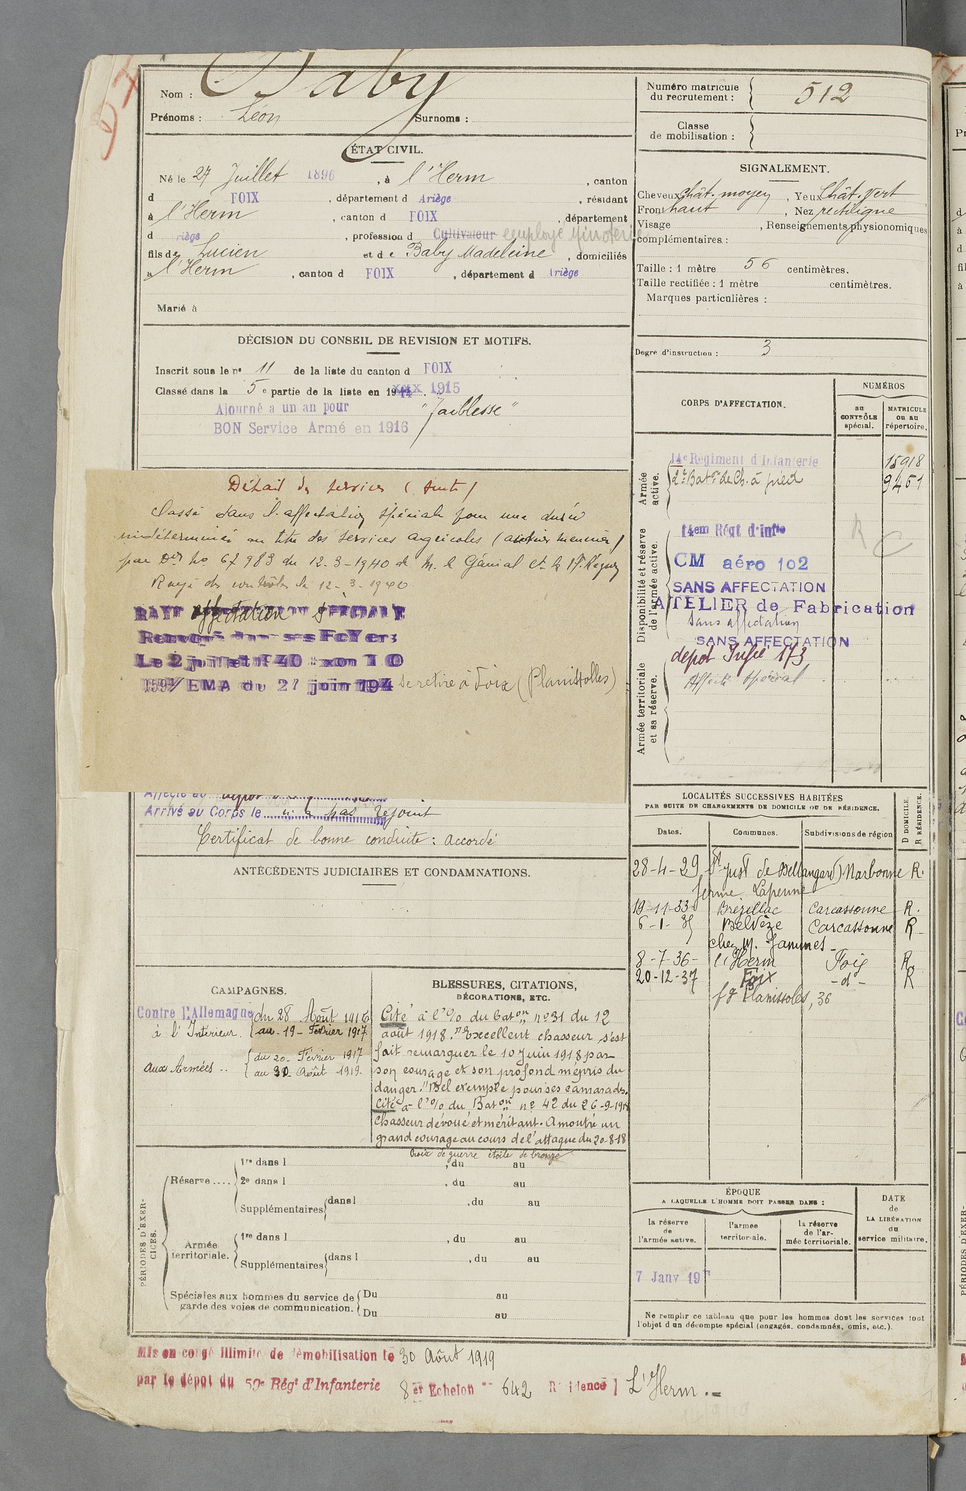 Nom : Baby
Prénoms : Léon Surnoms :
ÉTAT CIVIL.
Né le 27 Juillet 1896, à l'Herm, canton
d FOIX, département d Ariège, résidant
à l'Herm, canton d FOIX, département
d riège, profession d Cultivateur employé minoterie
fils de Lucien et de Baby Madeleine, domiciliés
à l'Herm, canton d FOIX, département d Ariège
Marié à
DÉCISION DU CONSEIL DE REVISION ET MOTIFS.
Inscrit sous le n° 11 de la liste du canton d FOIX
Classé dans la 5e partie de la liste en 1915
Ajourné a un an pour "faiblesse"
BON Service Armé en 1916
Détail des services (suite)
Classé dans l'affectation spéciale pour une durée
indéterminée au titre des services agricoles
par Don No 67983 du 12-3-1940 de M. le Général Ct la 17e Région
Rayé des contrôles le 12-3-1940
RAYÉ affectation SPECIALE
Renvoyé dans ses FoYers
Le 2 juillet 1940
EMA du 27 juin 194 Se retire à Foix (Planissolles)
Affecté au dépôt
Arrivé au Corps le n'a pas rejoint
Certificat de bonne conduite : accordé
ANTÉCÉDENTS JUDICIAIRES ET CONDAMNATIONS.
CAMPAGNES.
Contre l'Allemagne
à l'Intérieur. du 28 Août 1916
au 19 - Février 1917
aux Armées .. du 20 - Février 1917
au 30 Août 1919
BLESSURES, CITATIONS,
DÉCORATIONS, ETC.
Cité à l'O/ du Baton n° 31 du 12
août 1918. "Excellent chasseur s'est
fait remarquer le 10 Juin 1918 par
son courage et son profond mépris du
danger. "Bel exemple pour ses camarades.
Cité à l'O/ du Baton n° 42 du 26-9-1918
Chasseur dévoué et méritant. A montré un
grand courage au cours de l'attaque du 20-8-18
Croix de guerre étoile de bronze
PÉRIODES D'EXERCICES.
Réserve .... 1re dans l , du au
2e dans l , du au
Supplémentaires dans l , du au
Armée territoriale. 1re dans l , du au
Supplémentaires dans l , du au
Spéciales aux hommes du service de
garde des voies de communication. Du au
Du au
Mis en congé illimité de démobilisation le 30 Août 1919
par le dépôt du 59e Régt d'Infanterie 8er Echelon n° 642 Résidence L'Herm
Numéro matricule
du recrutement : 512
Classe
de mobilisation :
SIGNALEMENT.
Cheveux chât. moyen, Yeux Chât. vert
Front haut, Nez rectiligne
Visage , Renseignements physionomiques
complémentaires :
Taille : 1 mètre 56 centimètres.
Taille rectifiée : 1 mètre centimètres.
Marques particulières :
Degré d'instruction : 3
CORPS D'AFFECTATION.
NUMÉROS
au CONTRÔLE spécial.
MATRICULE ou au répertoire.
Armée active.
14e Régiment d'Infanterie 15918
2e Baton de Ch. à pied 9451
Disponibilité et réserve de l'armée active.
14em Régt d'Infie
CM aéro 102
SANS AFFECTATION
ATELIER de Fabrication
Sans affectation
SANS AFFECTATION
Armée territoriale et sa réserve.
depot Infie 173
Affecté spécial
R C
LOCALITÉS SUCCESSIVES HABITÉES
PAR SUITE DE CHANGEMENTS DE DOMICILE OU DE RÉSIDENCE.
Dates. Communes. Subdivisions de région D DOMICILE. R RÉSIDENCE.
28-4-29 St Just de Bellengard Narbonne R.
ferme Lapenne
19-11-33 Brézillac Carcassonne R.
6-1-35 Belvèze Carcassonne R
chez M. Jammes
8-7-36 l'Herm Foix R
20-12-37 Foix -d- R
fg Planissoles, 36
ÉPOQUE
A LAQUELLE L'HOMME DOIT PASSER DANS :
la réserve de l'armée active.
l'armée territoriale.
la réserve de l'armée territoriale.
DATE de LA LIBÉRATION du service militaire.
7 Janv 19
Ne remplir ce tableau que pour les hommes dont les services font
l'objet d'un décompte spécial (engagés, condamnés, omis, etc.).